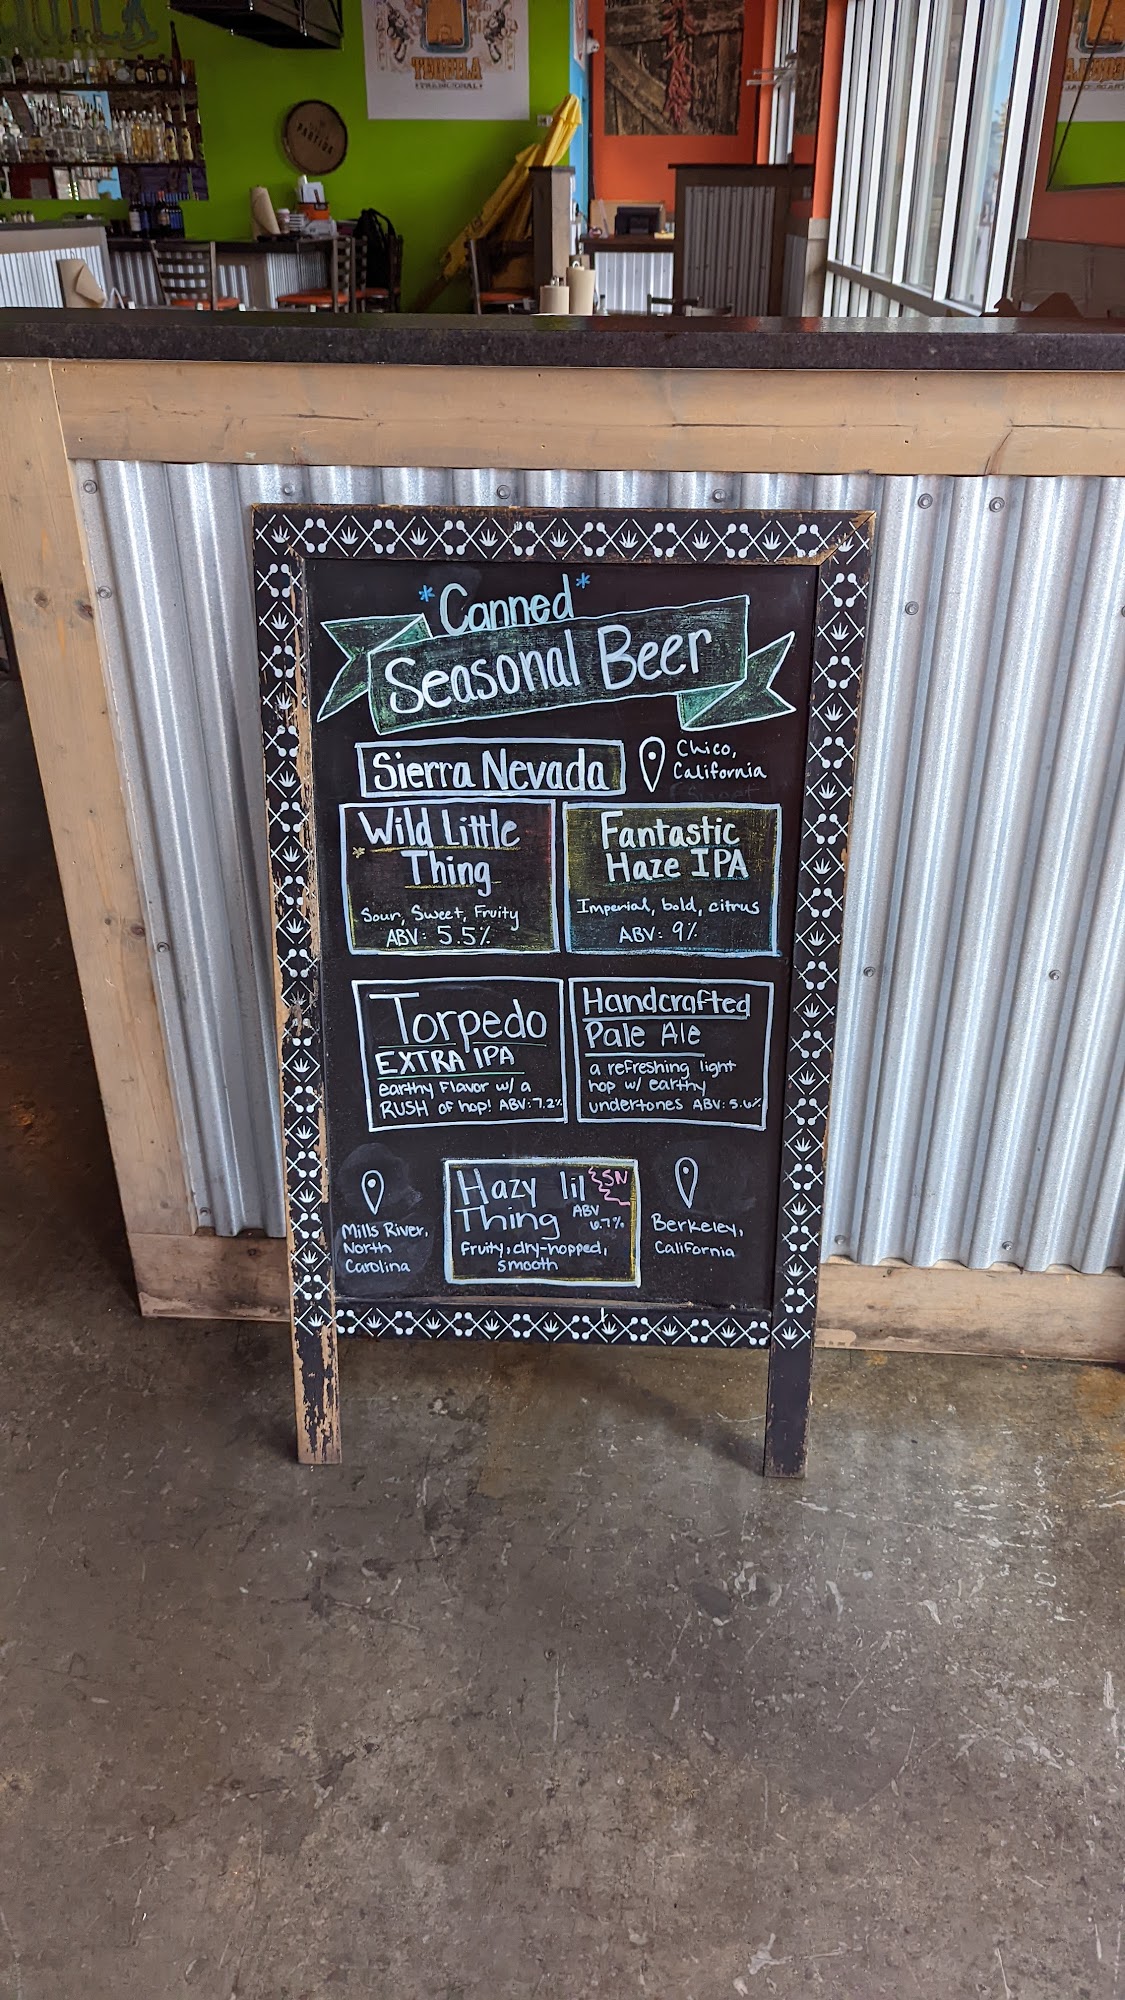 TEQUILA
TRADICIONAL
PARTIDA
*Canned*
Seasonal Beer
Sierra Nevada
Chico,
California
Sweet
Wild Little
Thing
Sour, Sweet, Fruity
ABV: 5.5%
Fantastic
Haze IPA
Imperial, bold, citrus
ABV: 9%
Torpedo
EXTRA IPA
earthy flavor w/ a
RUSH of hop! ABV:7.2%
Handcrafted
Pale Ale
a refreshing light
hop w/ earthy
undertones ABV: 5.6%
Mills River,
North
Carolina
Hazy lil
Thing
SN
ABV
6.7%
Fruity, dry-hopped,
smooth
Berkeley,
California